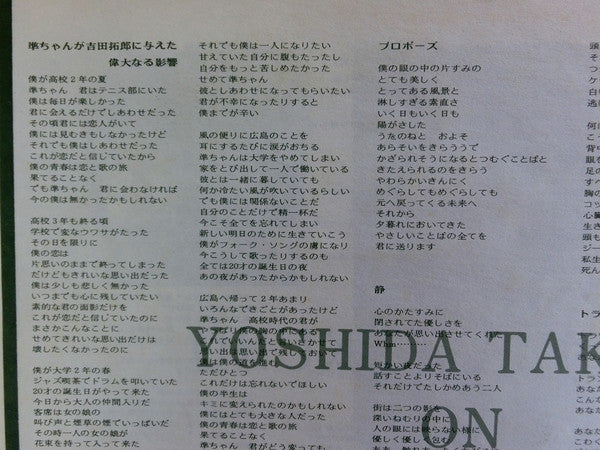 準ちゃんが吉田拓郎に与えた
偉大なる影響
僕が高校2年の夏
準ちゃん 君はテニス部にいた
僕は毎日が楽しかった
君に会えるだけでしあわせだった
その頃君には恋人がいて
僕には見むきもしなかったけど
それでも僕はしあわせだった
これが恋だと信じていたから
僕の青春は恋と歌の旅
果てることなく
でも準ちゃん 君に会わなければ
今の僕は無かったかもしれない
高校3年も終る頃
学校で変なウワサがたった
その日を限りに
僕の恋は
片思いのままで終ってしまった
だけどもきれいな思い出だった
僕は少しも悲しくて無かった
いつまでも心に残していたい
素的な君の面影だけを
これが恋だと信じていたのに
まさかこんなことに
せめてきれいな思い出だけは
壊したくなかったのに
僕が大学2年の春
ジャズ喫茶でドラムを叩いていた
20才の誕生日がやって来た
今日から大人の仲間入りだ
客席は女の娘の
叫び声と煙草の煙でいっぱいだ
その時一人の女の娘が
花束を持って入って来た
それでも僕は一人になりたい
甘えていた自分に腹もたったし
自分をもっと苦しめたかった
せめて準ちゃん
彼としあわせになってもらいたい
君が不幸になったりすると
僕までが辛い
風の便りに広島のことを
耳にするたびに涙がおちる
準ちゃんは大学をやめてしまい
家をとび出して一人で働いている
彼とは一緒に暮していても
何か冷たい風が吹いているらしい
でも僕には関係ないことだ
自分のことだけで精一杯だ
今こそ全てを忘れてしまい
新しい明日のために生きていこう
僕がフォーク・ソングの虜になり
今こうして歌ったりするのも
全ては20才の誕生日の夜
あの夜があったからかもしれない
広島へ帰って2年あまり
いろんなできごとがあったけど
準ちゃん 高校時代の君が
ただひとつ
これだけは忘れないでほしい
僕の半生は
キミに変えられたのかもしれない
僕にはとても大きな人だった
僕の青春は恋と歌の旅
果てることなく
準ちゃん 君がどう変っても
プロポーズ
僕の眼の中の片すみの
とても美しく
とってある風景と
淋しすぎる素直さ
いく日もいく日も
陽がさした
うたのねと およそ
あらそいをきらううで
かざられそうになるとつむぐことばと
きたえられるのをきらう
やわらかいきんにく
めぐらしてもめぐらしても
元へ戻ってくる未来へ
それから
夕暮れにおいてきた
やさしいことばの全てを
君に送ります
静
心のかたすみに
閉された優しさを
あなたが思い出させてくれた
短かい夜だった
話すことよりそばにいる
それだけでたしかめあう二人
街は二つの影を
深いねむりの中に
人の眼には映らない様に
優しく優しく包む
YOSHIDA TAK
ON